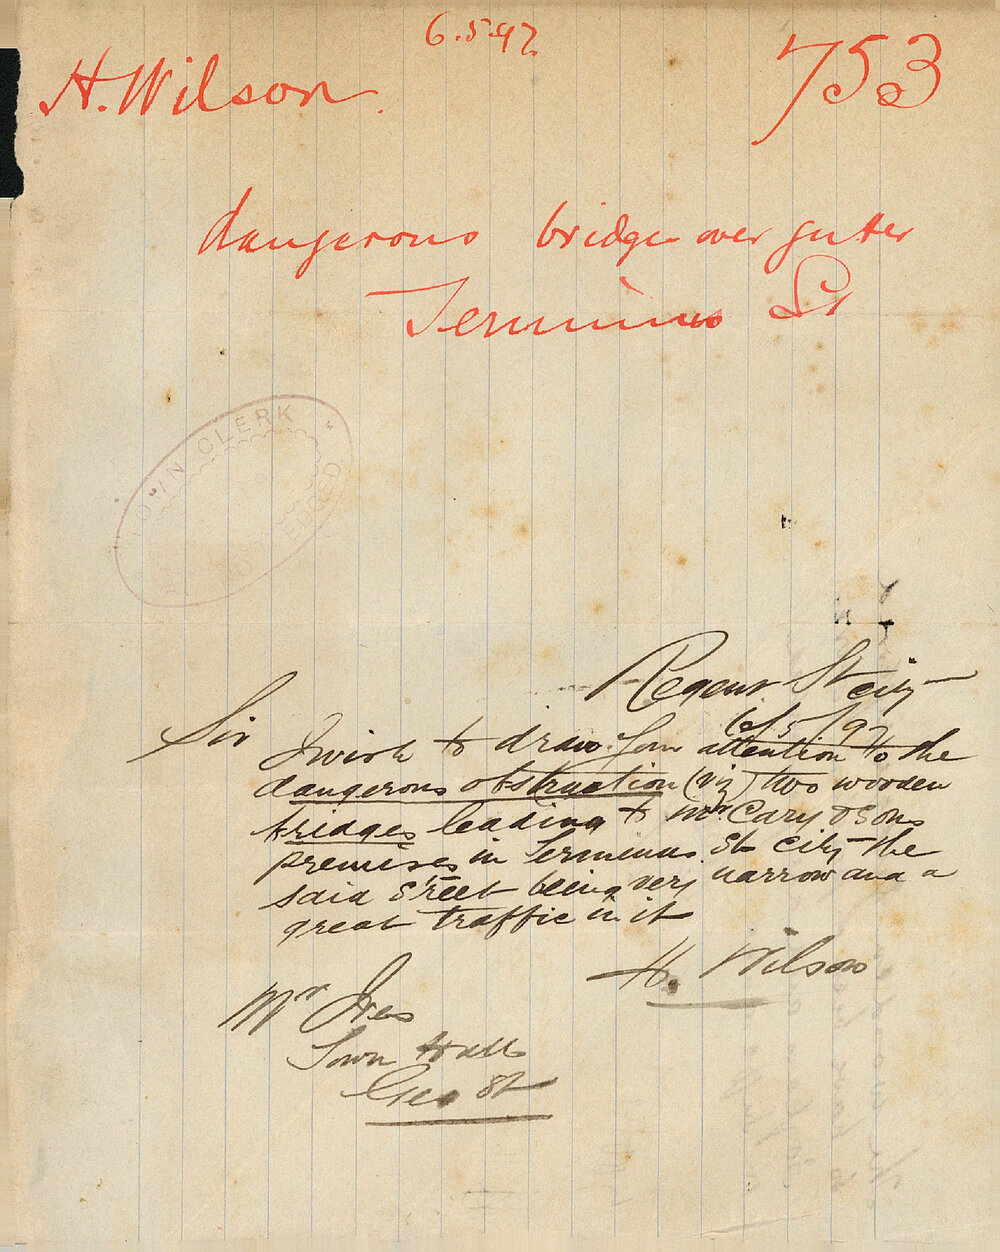 6.5.97
H. Wilson.
753
dangerous bridge over gutter
Terminus St
TOWN CLERK
Regent St city
6/5/97
Sir
I wish to draw your attention to the
dangerous obstruction (viz) two wooden
bridges leading to Mr Cary & Sons
premises in Terminus St city the
said Street being very narrow and a
great traffic in it
H. Wilson
Mr Ives
Town Hall
Geo St